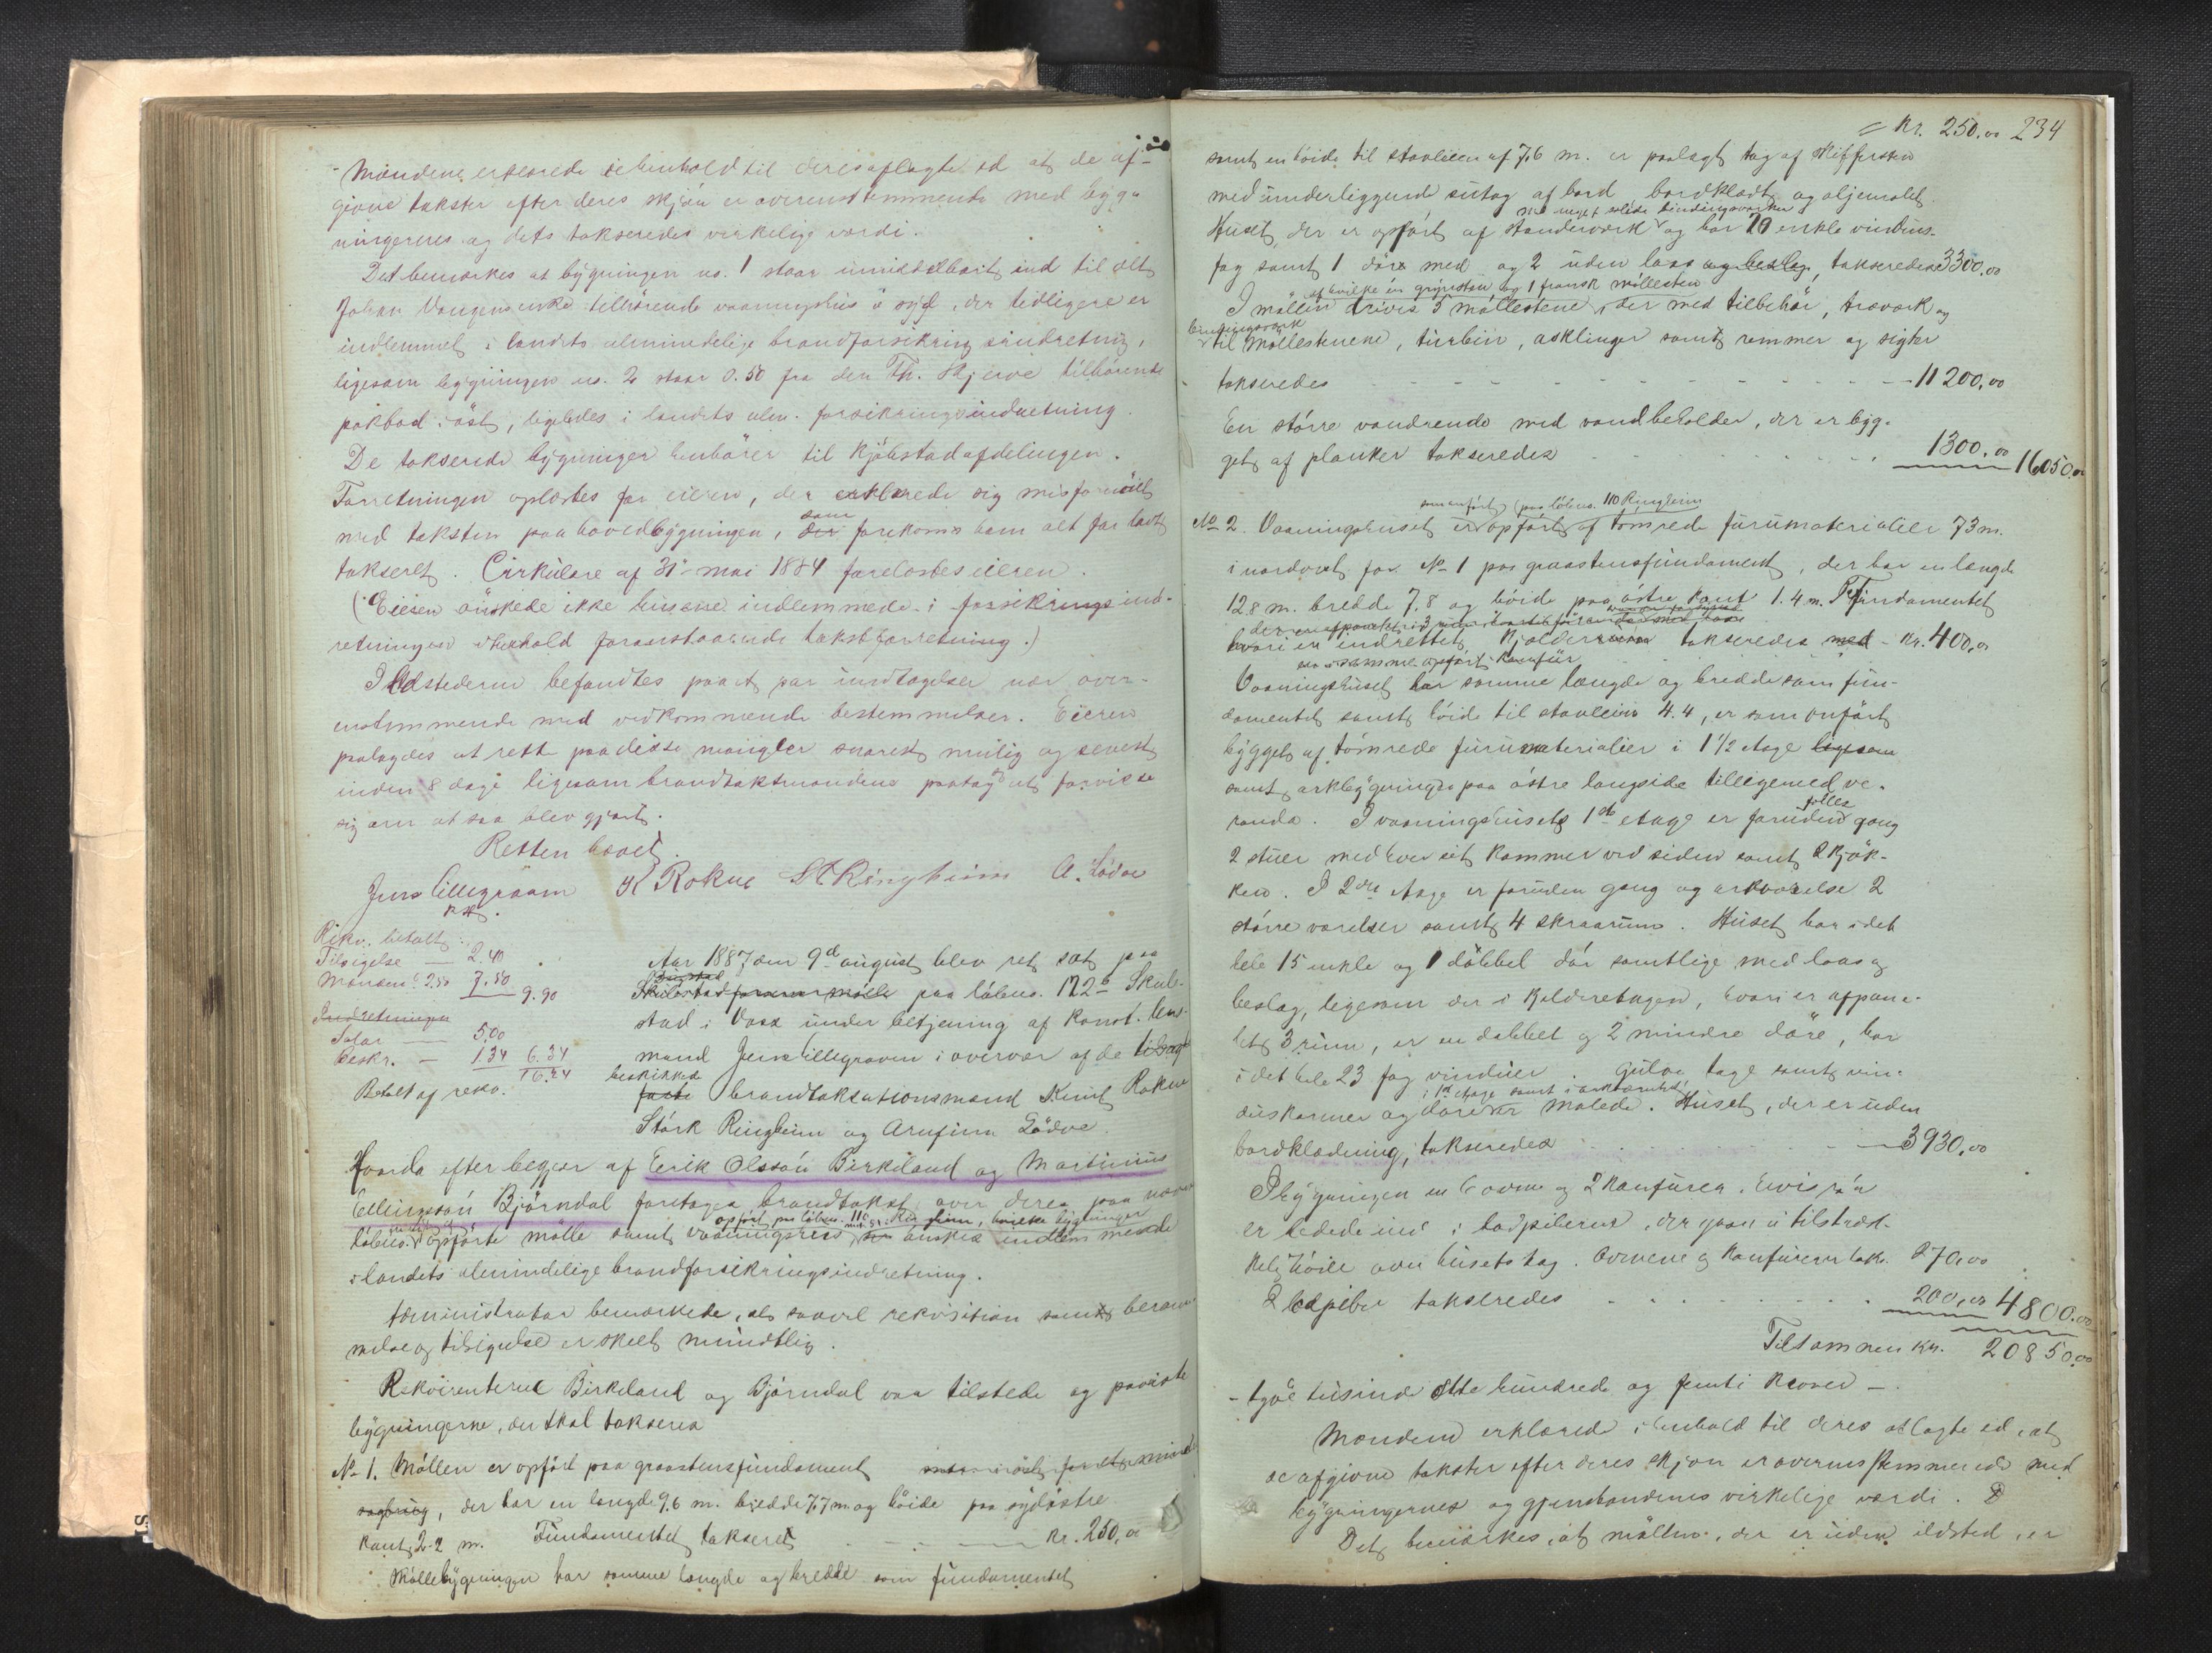 Mændene erklærede i henhold til deres aflagte ed at de af-
givne takster efter deres skjøn er overenstemmende med bygn-
ningernes og dets takseredes virkelige værdi.
Det bemærkes at bygningen no. 1 staar umiddelbart ind til
Johan Vangens enke tilhørende vaaningshus i syd, der tidligere er
indlemmet i landets almindelige brandforsikringsindretning,
ligesom bygningen no. 2 staar 0.50 fra den Th. Skjerve tilhørende
pakbod i øst, ligeledes i landets alm. forsikringsindretning.
De takserede bygninger henhører til Kjøbstadafdelingen.
Forretningen oplæstes for eieren, der erklærede sig misfornøiet
med taksten paa hovedbygningen, som forekom ham alt for lavt
takseret. Cirkulære af 31te mai 1884 forelæstes eieren.
(Eieren ønskede ikke husene indlemmede i forsikringsind-
retningen i henhold foranstaaende takstforretning.)
Ildstederne befandtes paa et par undtagelser nær over-
enstemmende med vedkommende bestemmelser. Eieren
paalagdes at rette paa disse mangler snarest mulig og senest
inden 8 dage ligesom brandtakstmændene paatog sig at forvisse
sig om at saa blev gjort.
Retten hævet.
Jens Lillegraven K Rokne St Ringheim A. Lødve
Rekv. betalt:
Tilsigelse — 2.40
Mændene à 2.50 7.50
9.90
Salær — 5.00
Beskr. — 1.34 6.34
16.24
Betalt af rekv.
Aar 1887 den 9de august blev ret sat paa
Skulestad paa løbeno. 172b Skule-
stad i Voss under betjening af konst. lens-
mand Jens Lillegraven i overvær af de tilsagte
beskikkede
faste brandtaksationsmænd Knut Rokne
Størk Ringheim og Arnfinn Lødve.
Hvorda efter begjær af Eerik Olssøn Birkeland og Martinius
Ellingssøn Bjørndal foretages brandtakst over deres paa nævnte
opført paa løbeno. 110 Ringheim, hvilke bygninger
løbeno. opførte mølle samt vaaningshus ønskes indlemmede
i landets almindelige brandforsikringsindretning.
Administrator bemærkede, at saavel rekvisition samt beram-
melse og tilsigelse er skeet mundtlig.
Rekvirenterne Birkeland og Bjørndal var tilstede og paaviste
bygningerne, der skal takseres
No 1. Møllen er opført paa graastensfundament
sagbrug, der har en længde 9,6 m. bredde 7,7 m. og høide paa sydøstre
kant 2.2 m. Fundamentet takseret — kr. 250,00
Møllebygningen har samme længde og bredde som fundamentet
= Kr. 250.00 234
samt en høide til stavleien af 7,6 m. er paalagt tag af skiffersten
med underliggende sutag af bord, bordklædt og oljemalet.
med meget solide bindingsværker
Huset, der er opført af standerværk og har 20 enkle vindus-
fag samt 1 dør med og 2 uden laas og beslag, takseredes 3300.00
af hvilke én grynsten og 1 fransk møllesten
I møllen drives 5 møllestene, der med tilbehør, træværk og
bindingsværk
til møllestenene, turbin, akslinger samt remmer og sigter
takseredes - - - 11200,00
En større vandrende med vandbeholder, der er byg-
get af planker takseredes 1300.00 16050.00
som anført (paa løbeno. 110 Ringheim
No 2. Vaaningshuset er opført af tømrede furumaterialier 73 m.
i nordvest for No 1 paa graastensfundament, der har en længde
12.8 m. bredde 7.8 og høide paa østre kant 1.4 m. Fundamentet
hvori er indrettet kjælder takseredes med - Kr. 400,00
Vaaningshuset har samme længde og bredde som fun-
damentet samt høide til stavleien 4.4, er som anført
bygget af tømrede furumaterialier i 1 1/2 etage ligesom
samt arkbygning paa østre langside tilligemed ve-
randa. I vaaningshusets 1ste etage er foruden fælles gang
2 stuer med hver sit kammer ved siden samt 2 kjøk-
ken. I 2den etage er foruden gang og arkværelse 2
større værelser samt 4 skraarum. Huset har i det
hele 15 enkle og 1 dobbel dør samtlige med laas og
beslag, ligesom der i kjelderetagen, hvori er afpane-
let 3 rum, er en dobbel og 2 mindre døre, har
i det hele 23 fag vinduer. Gulve tage samt vin-
i 1st etage samt i arkværelset
dueskarmer og døre er malede. Huset, der er uden
bordklædning, takseredes — 3930.00
I bygningen er 6 ovne og 2 kamfurer, hvis rør
er ledede ind i ladpiberne, der gaar i tilstræk-
kelig høide over husets tag. Ovnene og kamfurerne taks. 270,00
2 ladpiber takseredes 200,00 4800.00
Tilsammen Kr. 20850.00
- tyve tusind otte hundrede og femti kroner -
Mændene erklærede i henhold til deres aflagte ed, at
de afgivne takster efter deres skjøn er overensstemmende med
bygningernes og gjenstandenes virkelige værdi.
Det bemærkes, at møllen, der er uden ildsted, er